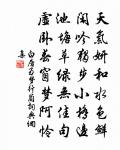 天氣妍和水色鮮
閑吟獨步小橋邊
池塘草綠無佳句
虛臥春窗夢阿憐
白居易夢行簡詞典網
集